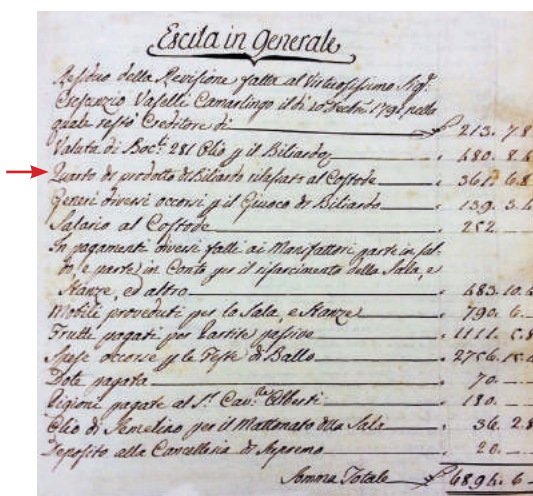 Escita in Generale
Residuo della Revisione fatta al Virtuosissimo Sigr.
Crescenzio Vaselli Camarlingo il dì 20 1791 nella
quale restò Creditore di £ 213. 7. 8
Valuta di Boc:li 281 Olio p il Biliardo 480. 8. 4
Quarto di prodotto di Biliardo rilasciato al Costode 361. 6. 8
Generi diversi occorsi p il Giuoco di Biliardo 139. 3. 4
Salario al Costode 252
In pagamenti diversi fatti ai Manifattori parte in sal-
do, e parte in Conto per il risarcimento della Sala, e
Stanze, ed altro 483. 10. 4
Mobili proveduti per la Sala, e Stanze 790. 6. —
Frutti pagati per Partite passive 1111. 5. 8
Spese occorse p le Feste di Ballo 2756. 15.
Dote pagata 70. —
Pigioni pagate al S. Cav. Alberti 180. —
Olio di Semelino per il Mattonato della Sala 36. 2. 8
Deposito alla Cancelleria di 20. —
Somma Totale £ 6894. 6 —